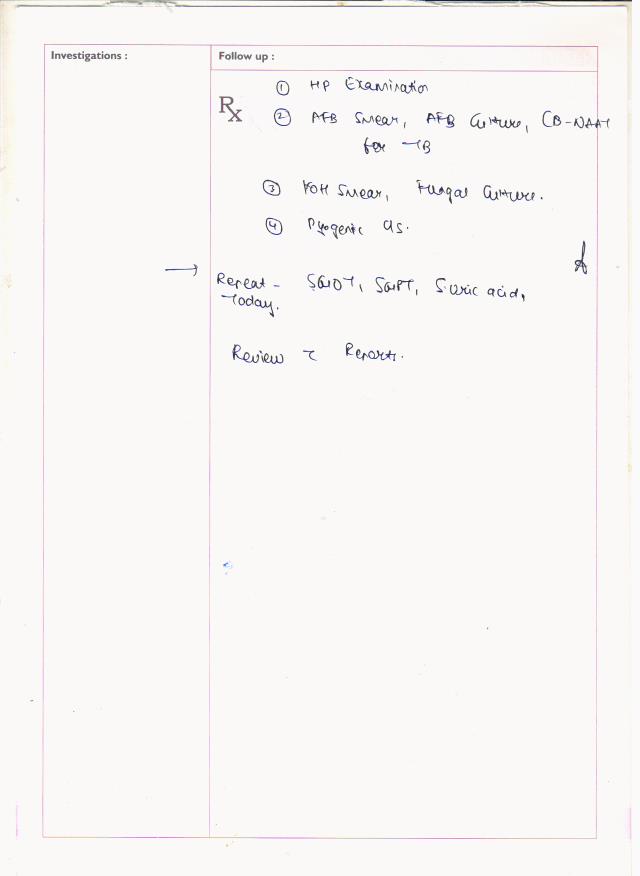 Investigations :
Follow up :
① HP Examination
Rx ② AFB Smear, AFB Culture, CB-NAAT
for TB
③ KOH Smear, Fungal Culture.
④ Pyogenic C/s.
→ Repeat - SGOT, SGPT, S. Uric acid,
Today.
Review c Reports.